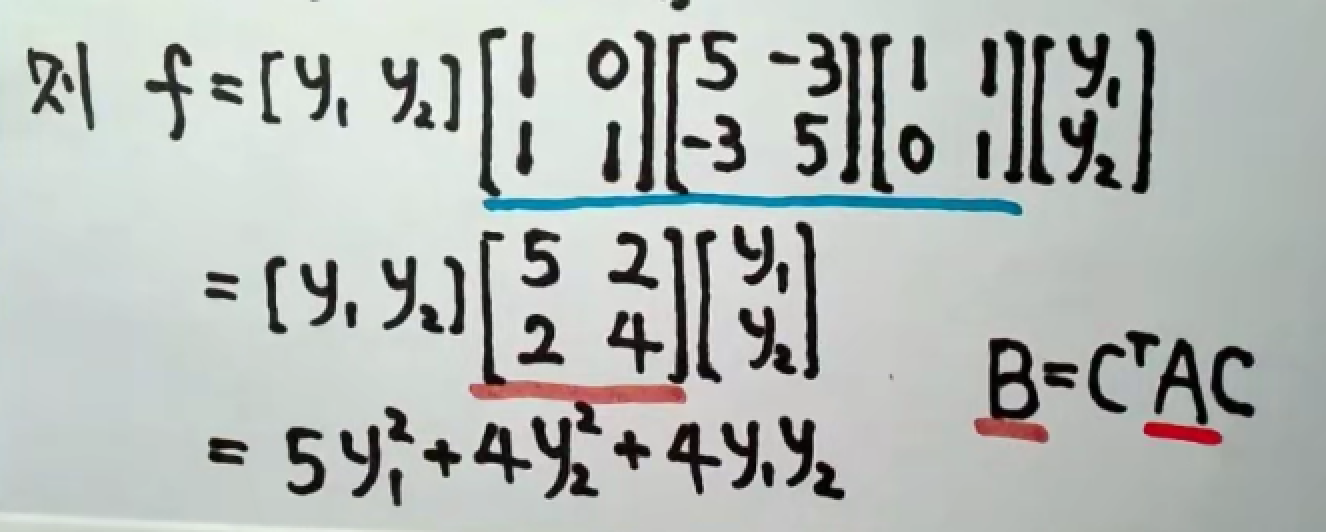 则 f = [y₁ y₂] [1 0; 1 1] [5 -3; -3 5] [1 1; 0 1] [y₁; y₂]
= [y₁ y₂] [5 2; 2 4] [y₁; y₂]
B = CᵀAC
= 5y₁² + 4y₂² + 4y₁y₂